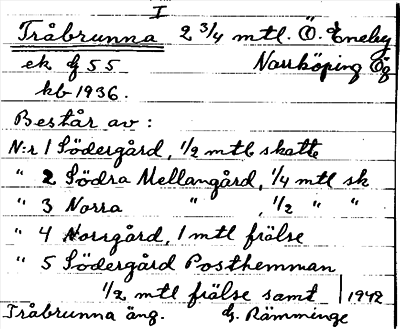 I
Tråbrunna 2 3/4 mtl. Ö. Eneby
ek bl 55 Norrköping Ög
kb 1936.
Består av:
N:r 1 Södergård, 1/2 mtl skatte
" 2 Södra Mellangård, 1/4 mtl sk
" 3 Norra " , 1/2 " "
" 4 Norrgård, 1 mtl frälse
" 5 Södergård Posthemman
1/2 mtl frälse samt 1942
Tråbrunna äng. G. Rämminge